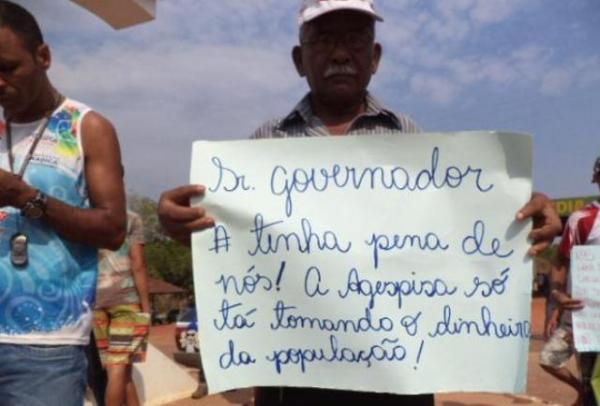 Sr. governador
A tenha pena de
nós! A Agespisa só
tá tomando o dinheiro
da população!